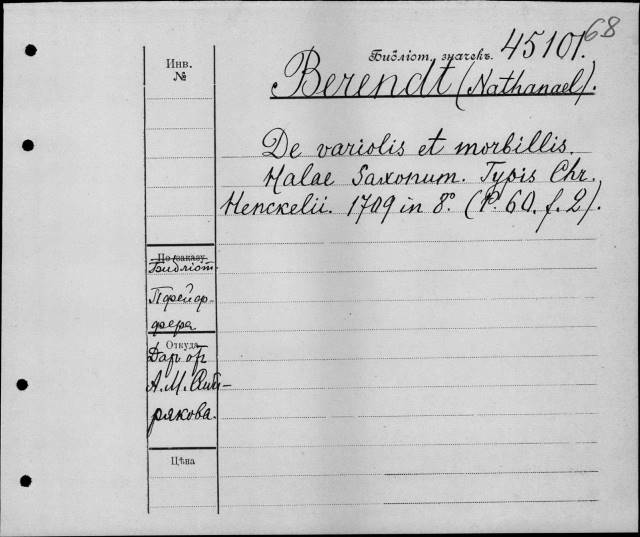 68
Библіот. значекъ. 45101.
Инв.
№
Berendt (Nathanael).
De variolis et morbillis.
Halae Saxonum. Typis Chr.
Henckelii. 1709 in 8° (P. 60. f. 2).
По заказу
Библіот.
Пфейф-
фера
Откуда
Даръ отъ
А. М. Сиби-
рякова.
Цѣна